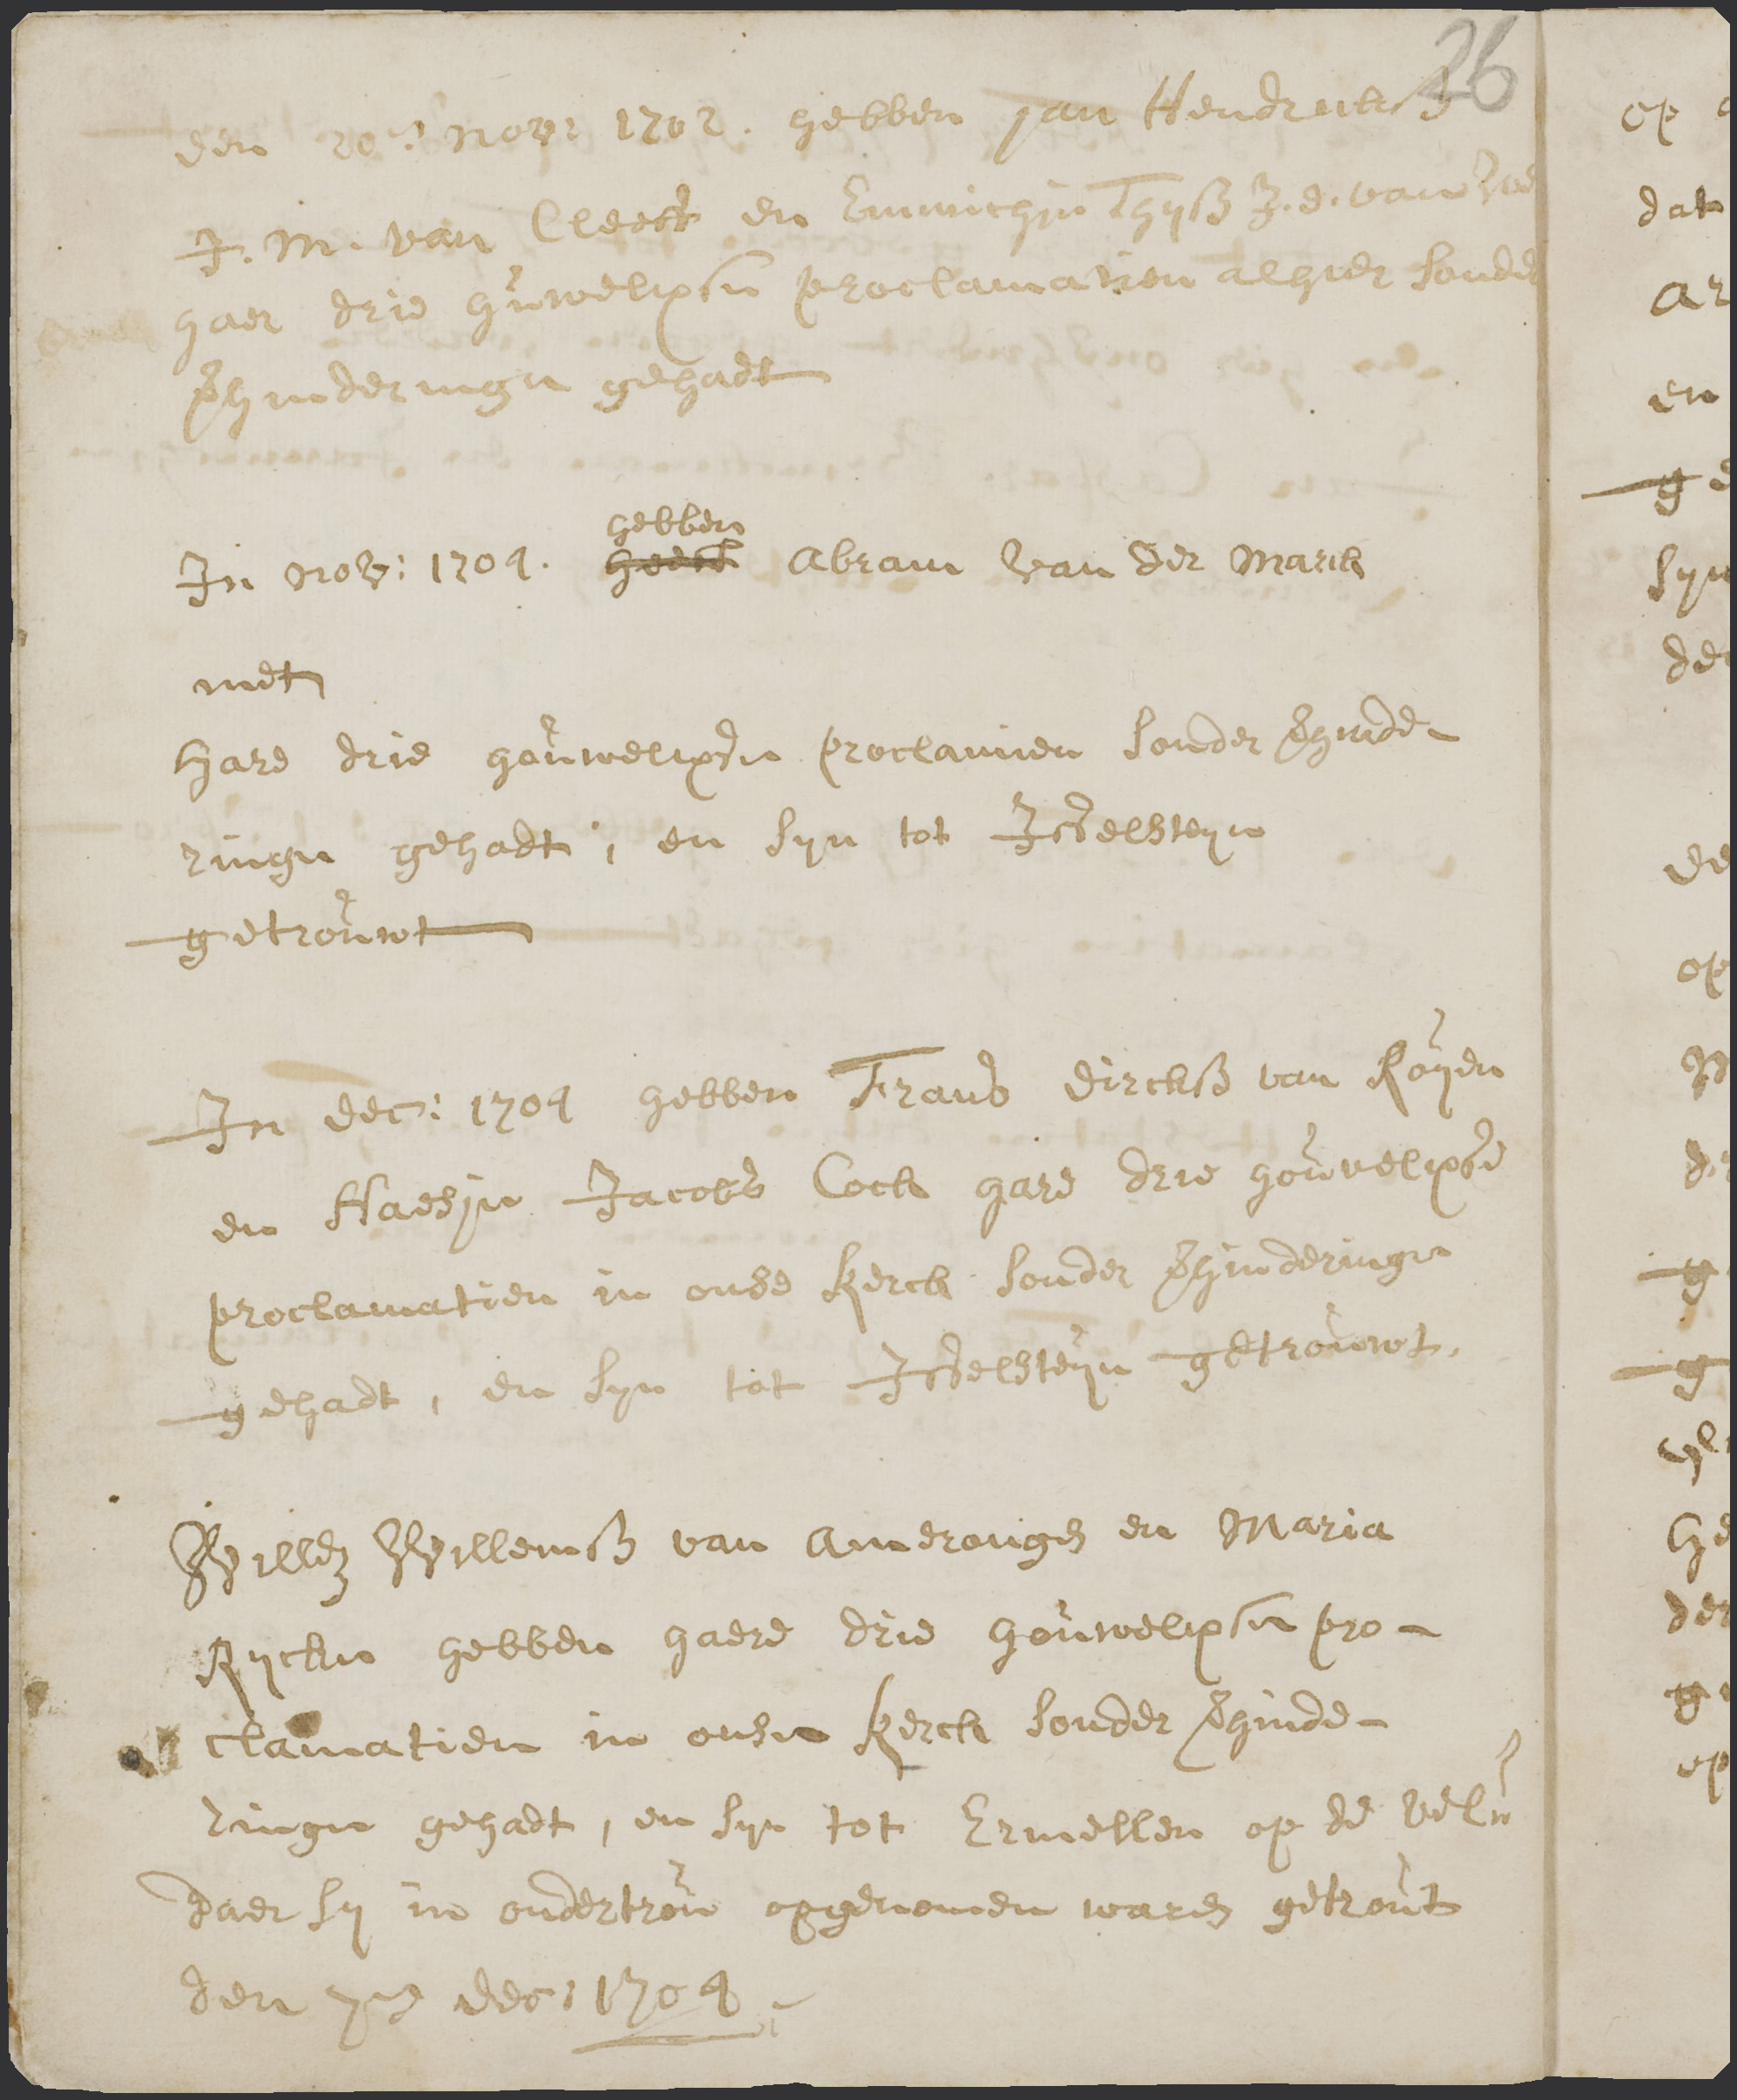 26
den 20en. Nov: 1702. hebben jan Hendricksz
J. M. van Cleeff en Emmichjn Thysz J. d. van
haer drie huwelijxsn proclamatien alhier sonder
vhinderingn gehadt
hebben
In Nov: 1704. heeft Abram van der Marck
met
Hare drie houwelijxen proclamien sonder vhinde-
ringn gehadt, en syn tot Isselsteyn
getrouwt
In dec: 1704 hebben Frans dircksz van Royen
en Haesjn Jacobs Cock hare drie houwelijxse
proclamatien in onse kerck sonder vhinderingn
gehadt, en syn tot Isselsteyn getrouwt.
Willem Willemsz van Amerongen en Maria
Ryckn hebben haere drie houwelijxsn pro-
clamatien in onsn kerck sonder vhinde-
ringn gehadt, en syn tot Ermellen op de velu
daer sy in ondertrou opgenomen waren getrout
den 7en dec: 1704.
op
dat
ar
en
ge
syn
de
de
op
d
g
g
he
der
g
op